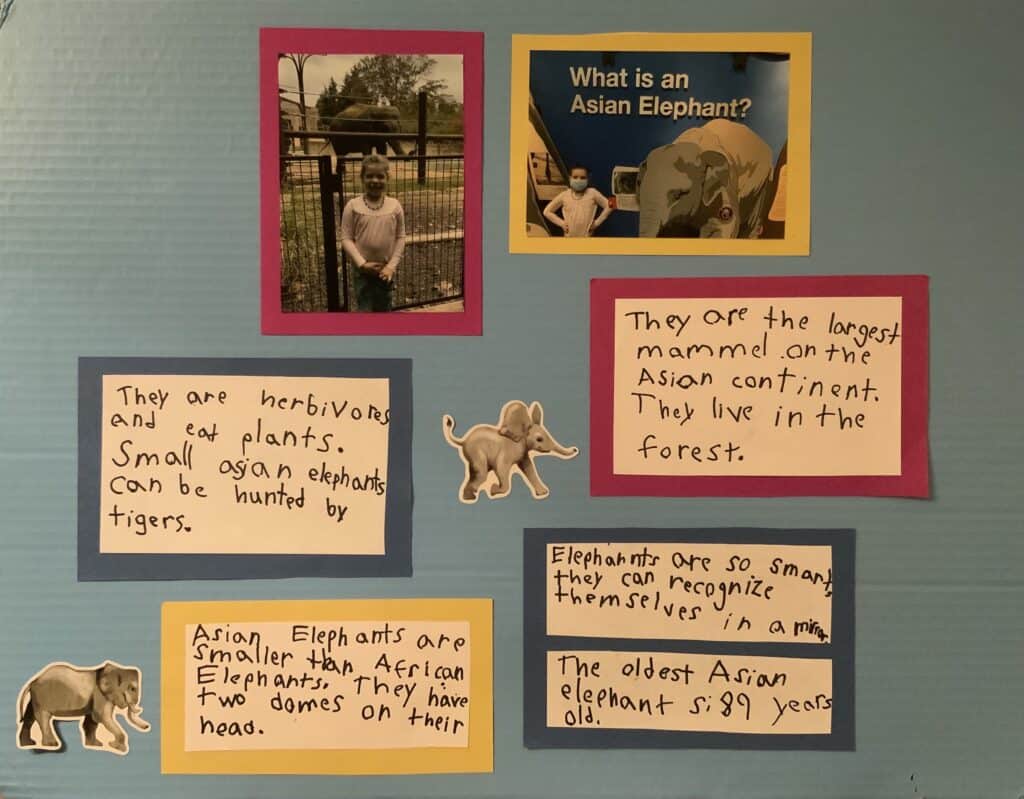 What is an
Asian Elephant?
They are the largest
mammel on the
Asian continent.
They live in the
forest.
They are herbivores
and eat plants.
Small asian elephants
can be hunted by
tigers.
Elephahnts are so smart,
they can recognize
themselves in a mirror.
The oldest Asian
elephant si 89 years
old.
Asian Elephants are
smaller than African
Elephants. They have
two domes on their
head.